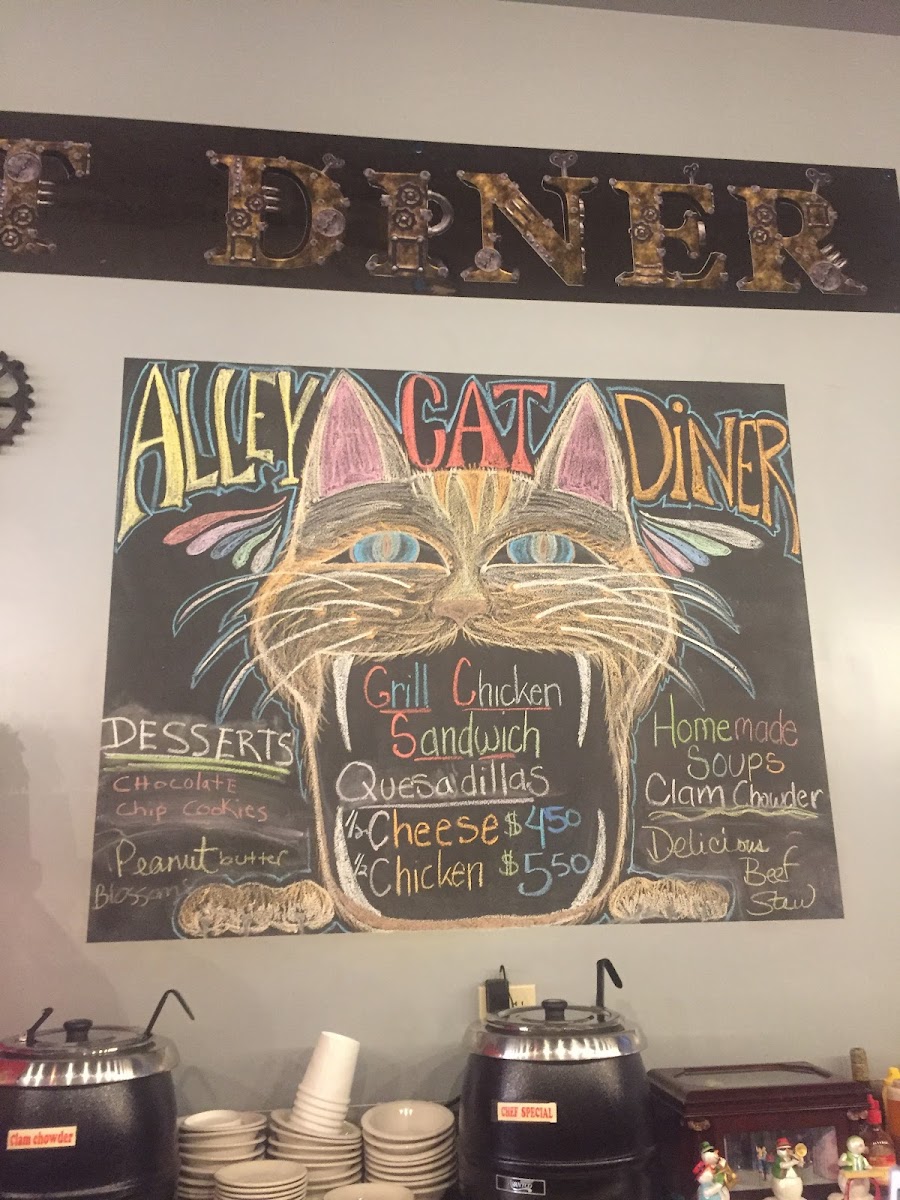 F DINER
ALLEY CAT DiNER
Grill Chicken
Sandwich
Quesadillas
1/2 Cheese $4.50
1/2 Chicken $5.50
DESSERTS
CHocolate
Chip Cookies
Peanut butter
Blossoms
Homemade
Soups
Clam Chowder
Delicious
Beef
Stew
Clam chowder
CHEF SPECIAL